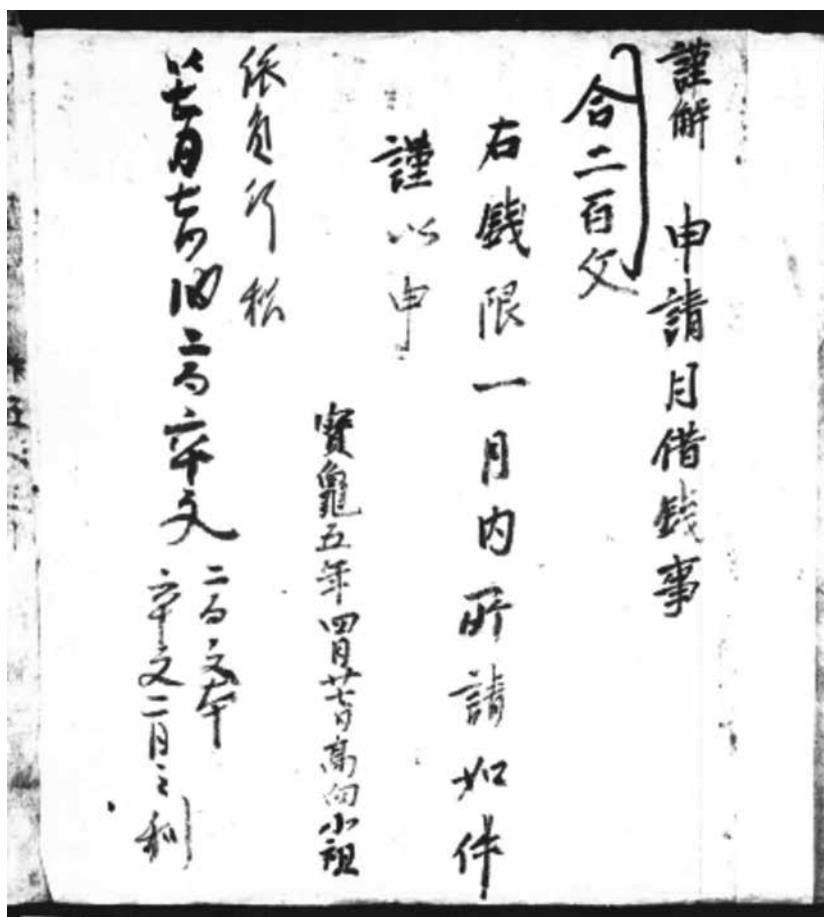 謹解 申請月借錢事
合二百文
右錢限一月内所請如件
謹以申
寶龜五年四月廿七日高向小祖
依員行
月七日納二百六十文
二百文本
六十文二月之利